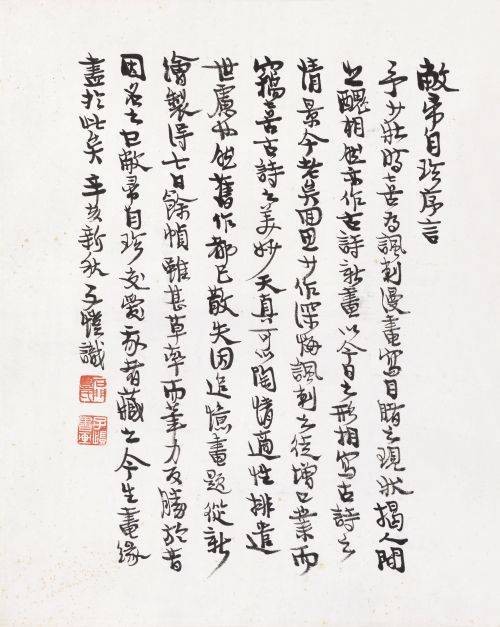 敝帚自珍序言
予少壯時喜為諷刺漫畫寫目睹之現狀揭人間
之醜相然亦作古詩新畫以今日之形相寫古詩之
情景今老矣回思少作深悔諷刺之徒增口業而
竊喜古詩之美妙天真可以陶情適性排遣
世慮也然舊作都已散失因追憶畫題從新
繪製得七十餘幀雖甚草率而筆力反勝於昔
因名之曰敝帚自珍交愛我者藏之今生畫緣
盡於此矣 辛亥新秋 子愷識